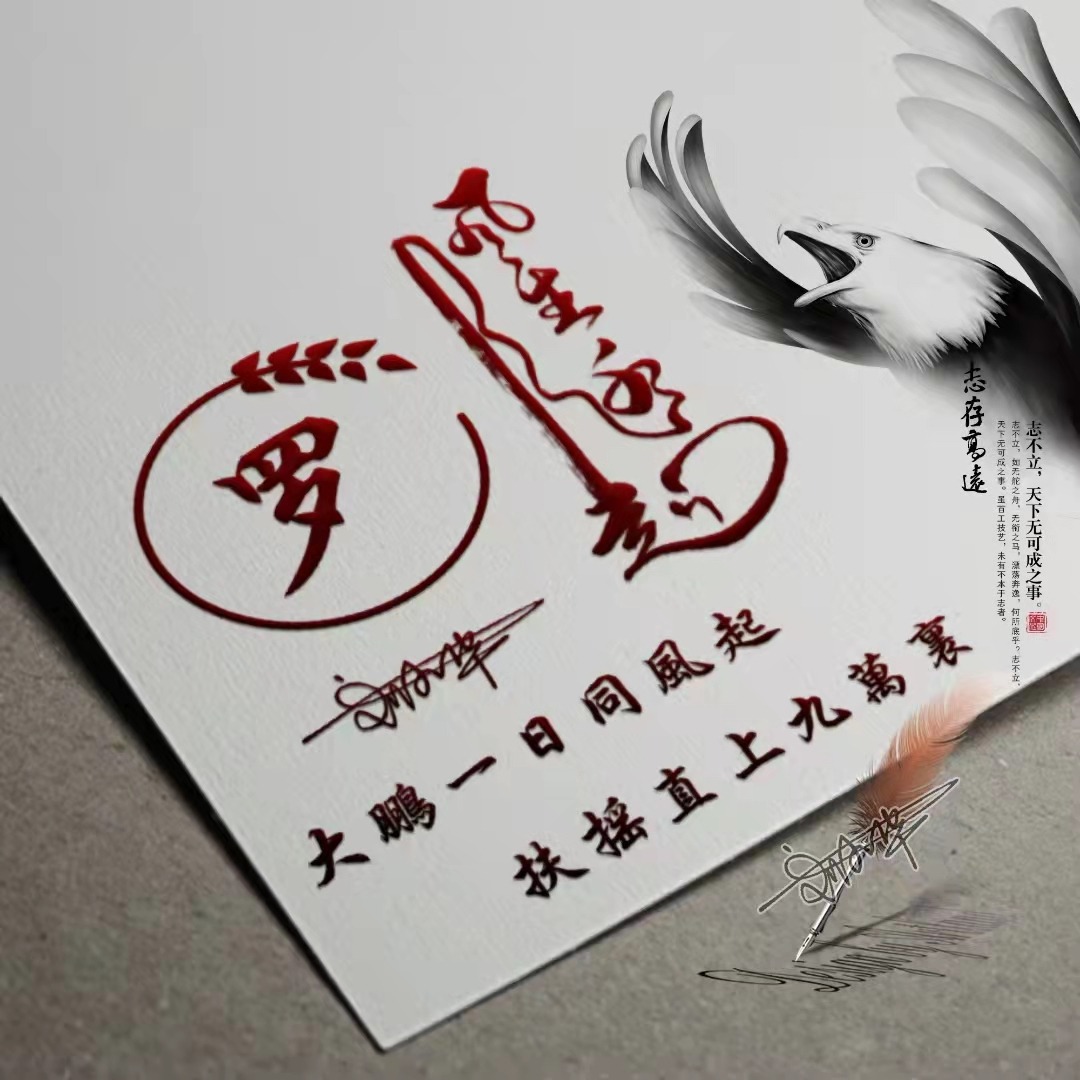 罗
风生水起
大鹏一日同風起
扶摇直上九萬裏
志存高遠
志不立，天下无可成之事。
志不立，如无舵之舟，无衔之马，漂荡奔逸，何所底乎？志不立，
天下无可成之事。虽百工技艺，未有不本于志者。